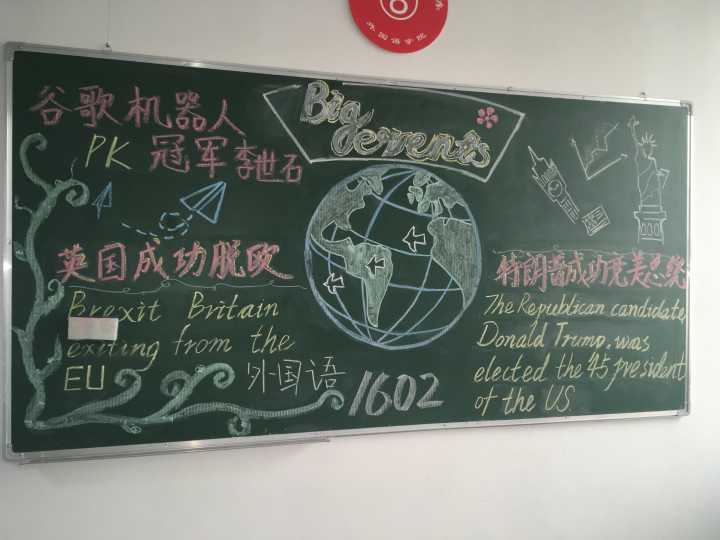 外国语学院
Big
events
谷歌机器人
PK 冠军李世石
英国成功脱欧
Brexit Britain
exiting from the
EU
外国语 1602
特朗普成功竞美总统
The Republican candidate
Donald Trump, was
elected the 45 president
of the US